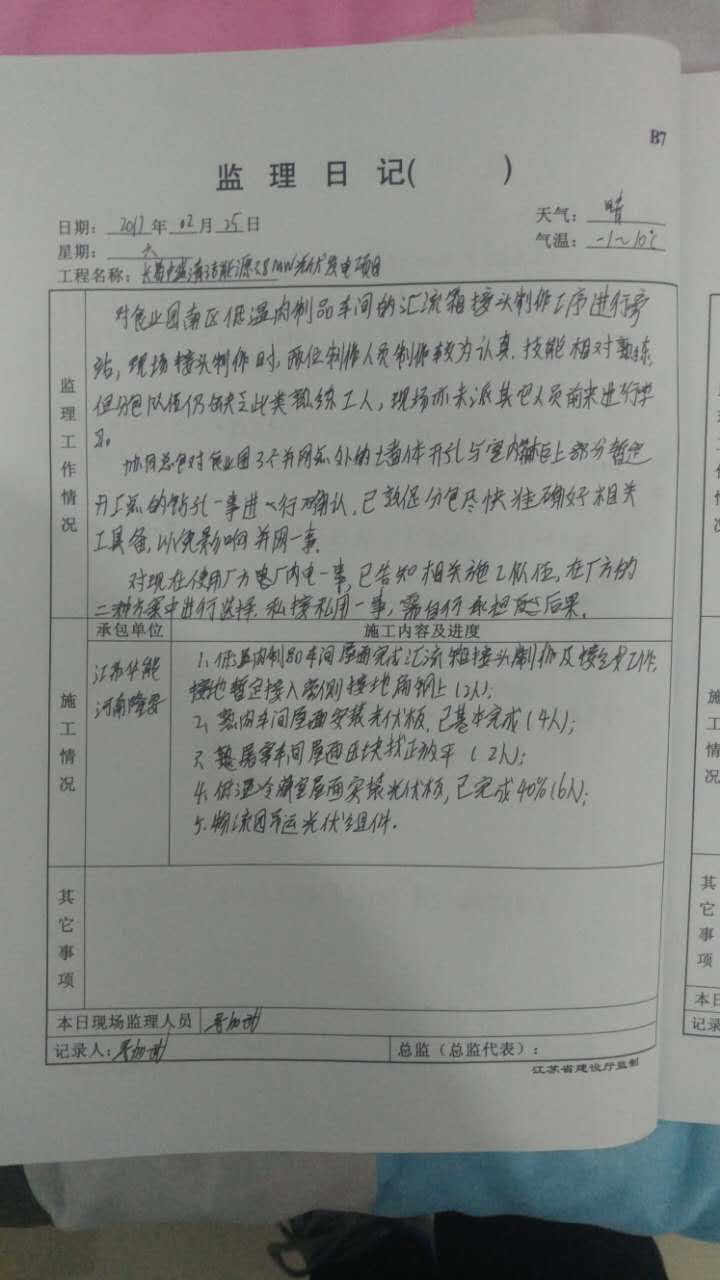 B7
监理日记( )
日期: 2017年02月25日
天气: 晴
星期: 六
气温: -1~10℃
工程名称: 长葛中 清洁能源 8MW光伏发电项目
监理工作情况
对食业园南区低温肉制品车间的汇流箱接头制作工序进行旁
站, 现场接头制作时, 两位制作人员制作较为认真, 技能相对熟练,
但分包队伍仍缺乏此类熟练工人, 现场亦未派其它人员前来进行学
习。
协同总包对食业园3个并网点外的墙体开孔与室内 部分暂定
开工点的钻孔一事进行确认, 已敦促分包尽快准确好相关
工具备, 以免影响并网一事.
对现在使用厂方 厂内电一事, 已告知相关施工队伍, 在厂方的
二种方案中进行选择, 私接私用一事, 需自行承担 后果.
承包单位
施工内容及进度
施工情况
江苏华能
河南隆
1、低温肉制品车间屋面完成汇流箱接头制作及接 工作,
接地暂定接入 接地扁钢上(2人);
2、熟肉车间屋面安装光伏板, 已基本完成(4人);
3、屠宰车间屋面区块找正放平(2人);
4、低温冷藏室屋面安装光伏板, 已完成40%(6人);
5、物流园吊运光伏组件.
其它事项
本日现场监理人员
记录人:
总监(总监代表):
江苏省建设厅监制